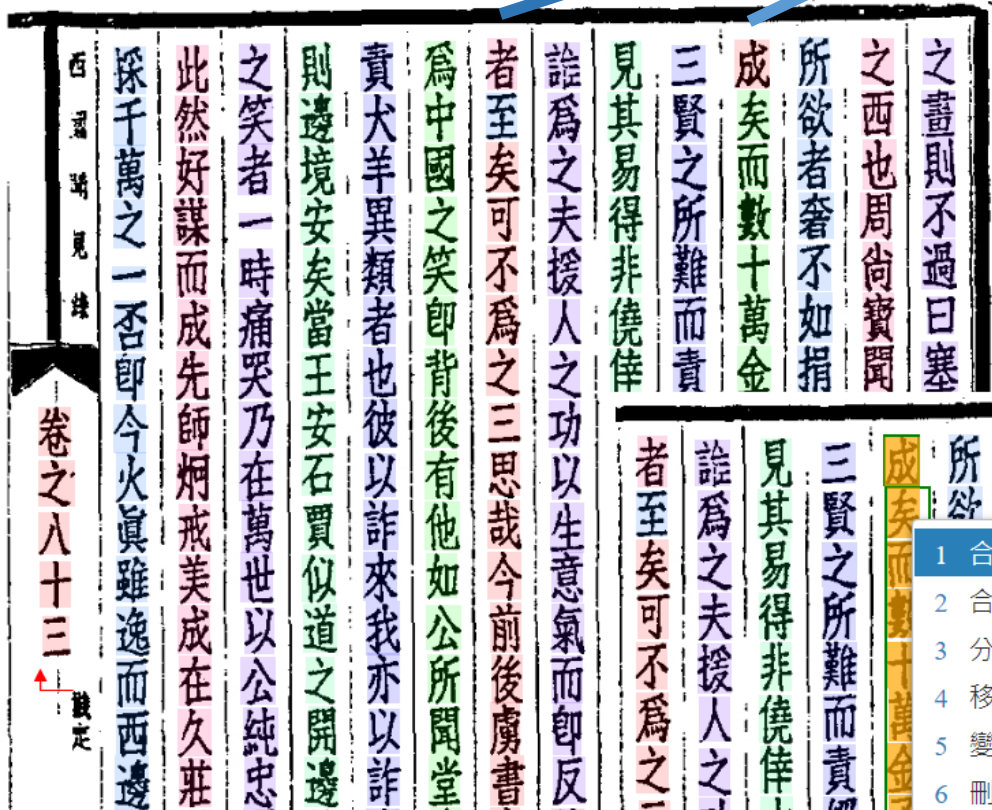 之畫則不過曰塞
之西也周尚寶聞
所欲者奢不如捐
成矣而數十萬金
三賢之所難而責
見其易得非僥倖
爲之夫援人之功以生意氣而卽反
者至矣可不爲之三思哉今前後虜書
爲中國之笑卽背後有他如公所聞堂
責犬羊異類者也彼以詐來我亦以詐
則邊境安矣當王安石賈似道之開邊
之笑者一時痛哭乃在萬世以公純忠
此然好謀而成先師炯戒美成在久莊
採千萬之一否卽今火眞雖逸而西邊
西園聞見錄
卷之八十三
所欲
成矣而數十萬金
三賢之所難而責
見其易得非僥倖
爲之夫援人之
者至矣可不爲之
1 合
2 合
3 分
4 移
5 變
6 刪